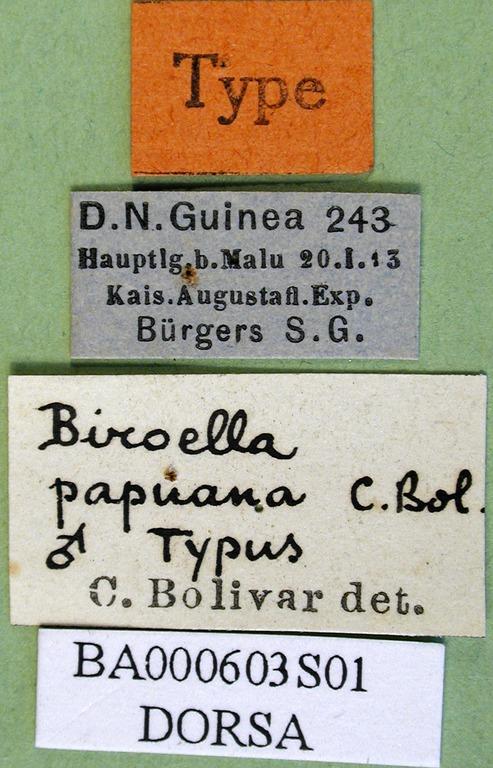 Type
D.N.Guinea 243
Hauptlg.b.Malu 20.I.13
Kais.Augustafl.Exp.
Bürgers S.G.
Biroella
papuana C.Bol.
♂ Typus
C. Bolivar det.
BA000603S01
DORSA